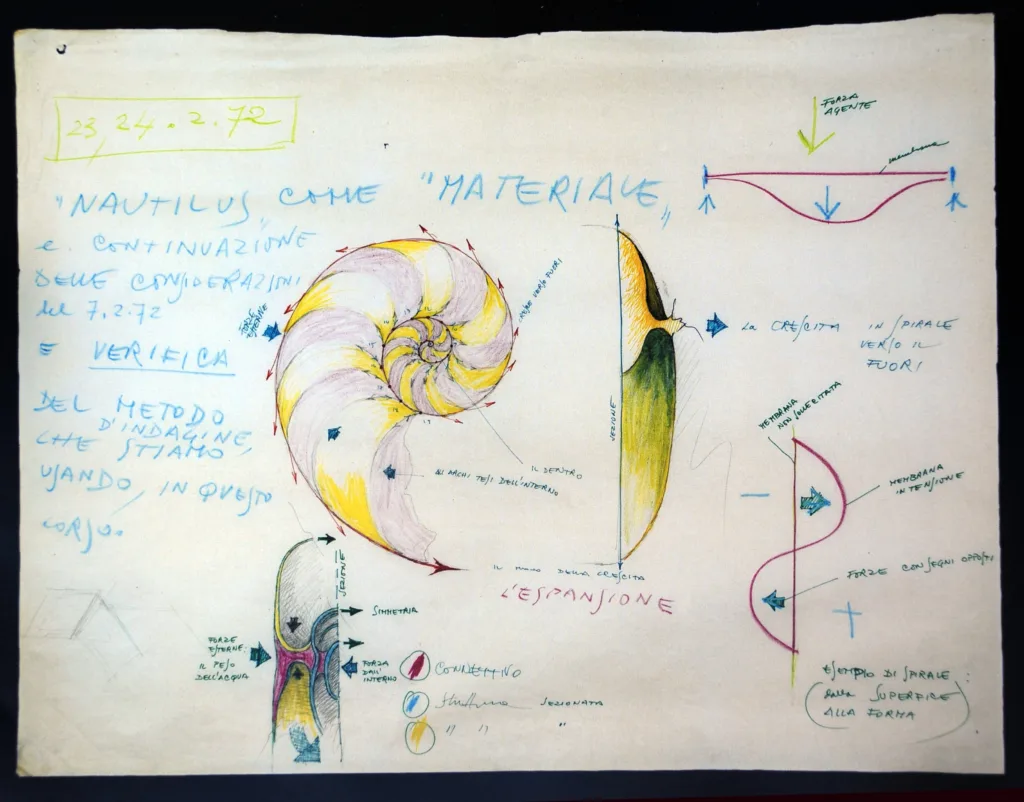 23, 24.2.72
"NAUTILUS" COME "MATERIALE"
e CONTINUAZIONE
DELLE CONSIDERAZIONI
del 7.2.72
E VERIFICA
DEL METODO
D'INDAGINE,
CHE STIAMO
USANDO, IN QUESTO
CORSO.
FORZA
AGENTE
membrana
FORZE
ESTERNE
VERSO FUORI
SEZIONE
LA CRESCITA IN SPIRALE
VERSO IL
FUORI
IL DENTRO
GLI ARCHI TESI DELL'INTERNO
MEMBRANA
NON SOLLECITATA
MEMBRANA
IN TENSIONE
FORZE CON SEGNI OPPOSTI
DELLA CRESCITA
L'ESPANSIONE
SEZIONE
SIMMETRIA
FORZE
ESTERNE:
IL PESO
DELL'ACQUA
FORZA
DALL'
INTERNO
CONNETTIVO
Struttura SEZIONATA
" " "
ESEMPIO DI SPIRALE
(dalla SUPERFICE
ALLA FORMA)